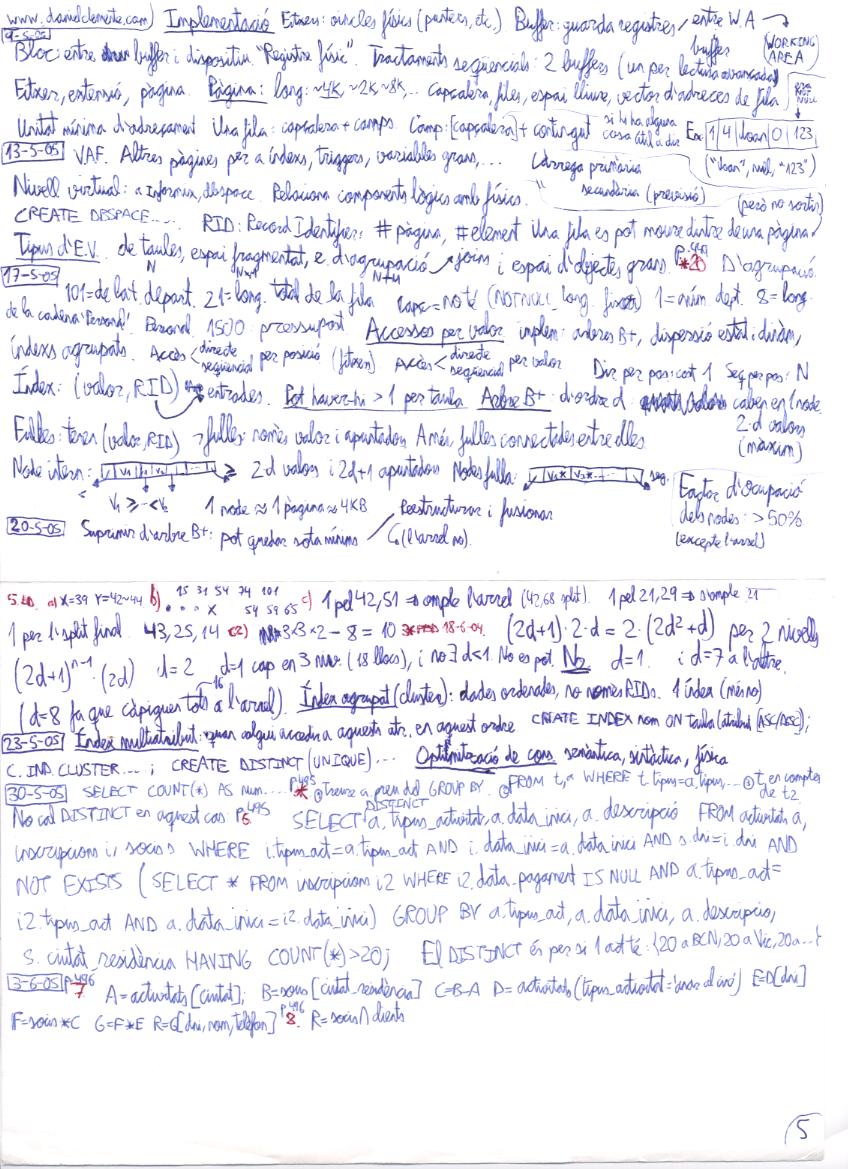 (www.danielclemente.com) Implementació Fitxers: oincles físics (punters, etc.) Buffer: guarda registres entre W.A → WORKING AREA
9-5-05 Bloc: entre buffer i dispositiu "Registre físic". Tractaments seqüencials: 2 buffers (un per lectura avançada)
Fitxer, extensió, pàgina. Pàgina: long: ~4K, ~2K ~8K,... capçalera, files, espai lliure, vector d'adreces de fila
Unitat mínima d'adreçament Una fila: capçalera + camps. Camp: [capçalera] + contingut si hi ha alguna cosa útil a dir Ex: 1 | 4 | Joan | 0 | 123
13-5-05 VAF. Altres pàgines per a índexs, triggers, variables grans,... Càrrega primària ("Joan", null, "123")
Nivell virtual: a Informix, dbspace. Relaciona components lògics amb físics. " secundària (previsió)
CREATE DBSPACE.... RID: Record Identifier: # pàgina, # element Una fila es pot moure dintre de una pàgina (però no sortir)
Tipus d'E.V. de taules, espai fragmentat, e. d'agrupació joins i espai d'objectes grans. P.441 *20 D'agrupació.
N N×1 N→4
17-5-05 101 = de la t. depart. 21 = long. total de la fila capç = no té (NOT NULL, long. fixa) 1 = núm. dept. 8 = long.
de la cadena 'Personal'. Personal. 1500 pressupost Accessos per valor implem: arbres B+, dispersió estàt. i dinàm,
índexs agrupats. Accés < directe seqüencial per posició (fitxers). Accés < directe seqüencial per valor Dir per pos: cost 1 Seq per pos: N
Índex: (valor, RID) entrades. Pot haver-hi > 1 per taula Arbre B+: d'ordre d valors caben en 1 node
2·d valors (màxim)
Fulles: tenen (valor, RID) ¬fulles: només valor i apuntadors A més, fulles connectades entre elles
Node intern: V1 V2 ... ≥ 2·d valors i 2d+1 apuntadors Nodes fulla: V1* V2* ... seg.
V1 ≥ - < V2 1 node ≈ 1 pàgina ≈ 4KB Reestructurar i fusionar Factor d'ocupació dels nodes: > 50% (excepte l'arrel)
20-5-05 Suprimir d'arbre B+: pot quedar sota mínims (l'arrel no).
a) X=39 Y=42~44 b) 15 31 54 74 101 X 54 59 65 c) 1 pel 42,51 ⇒ omple l'arrel (42,68 split). 1 pel 21,29 ⇒ s'omple 21
1 per l'split final. 43, 25, 14 3×3×2 - 8 = 10 18-6-04. (2d+1)·2·d = 2·(2d²+d) per 2 nivells
(2d+1)ⁿ⁻¹·(2d) d=2 d=1 cap en 3 niv. (18 llocs), i no ∃ d<1. No es pot. No d=1. i d=7 a l'altre.
(d=8 fa que càpiguen tots a l'arrel). 16 Índex agrupat (cluster): dades ordenades, no només RIDs. 1 índex (més no)
23-5-05 Índex multiatribut: quan calgui accedir a aquests atr. en aquest ordre CREATE INDEX nom ON taula (atribut [ASC/DESC]);
C. IND. CLUSTER....; CREATE DISTINCT (UNIQUE).... Optimització de cons. semàntica, sintàctica, física
30-5-05 SELECT COUNT(*) AS num.... P.495 * ① Treure a. preu del GROUP BY. ② FROM t,a WHERE t.tipus=a.tipus,... ③ t, en comptes de t2
No cal DISTINCT en aquest cas P.495 6. SELECT DISTINCT a.tipus_activitat, a.data_inici, a.descripció FROM activitats a,
inscripcions i, socis s WHERE i.tipus_act=a.tipus_act AND i.data_inici=a.data_inici AND s.dni=i.dni AND
NOT EXISTS (SELECT * FROM inscripcions i2 WHERE i2.data_pagament IS NULL AND a.tipus_act=
i2.tipus_act AND a.data_inici=i2.data_inici) GROUP BY a.tipus_act, a.data_inici, a.descripcio,
s.ciutat_residència HAVING COUNT(*)>20; El DISTINCT és per si 1 act té: {20 a BCN, 20 a Vic, 20 a...}
3-6-05 P.496 7 A=activitats[ciutat]; B=socis[ciutat_residència] C=B-A D=activitats(tipus_activitat='anar al cine') E=D[dni]
F=socis*C G=F*E R=G[dni, nom, telèfon] P.496 8. R=socis∩clients
5